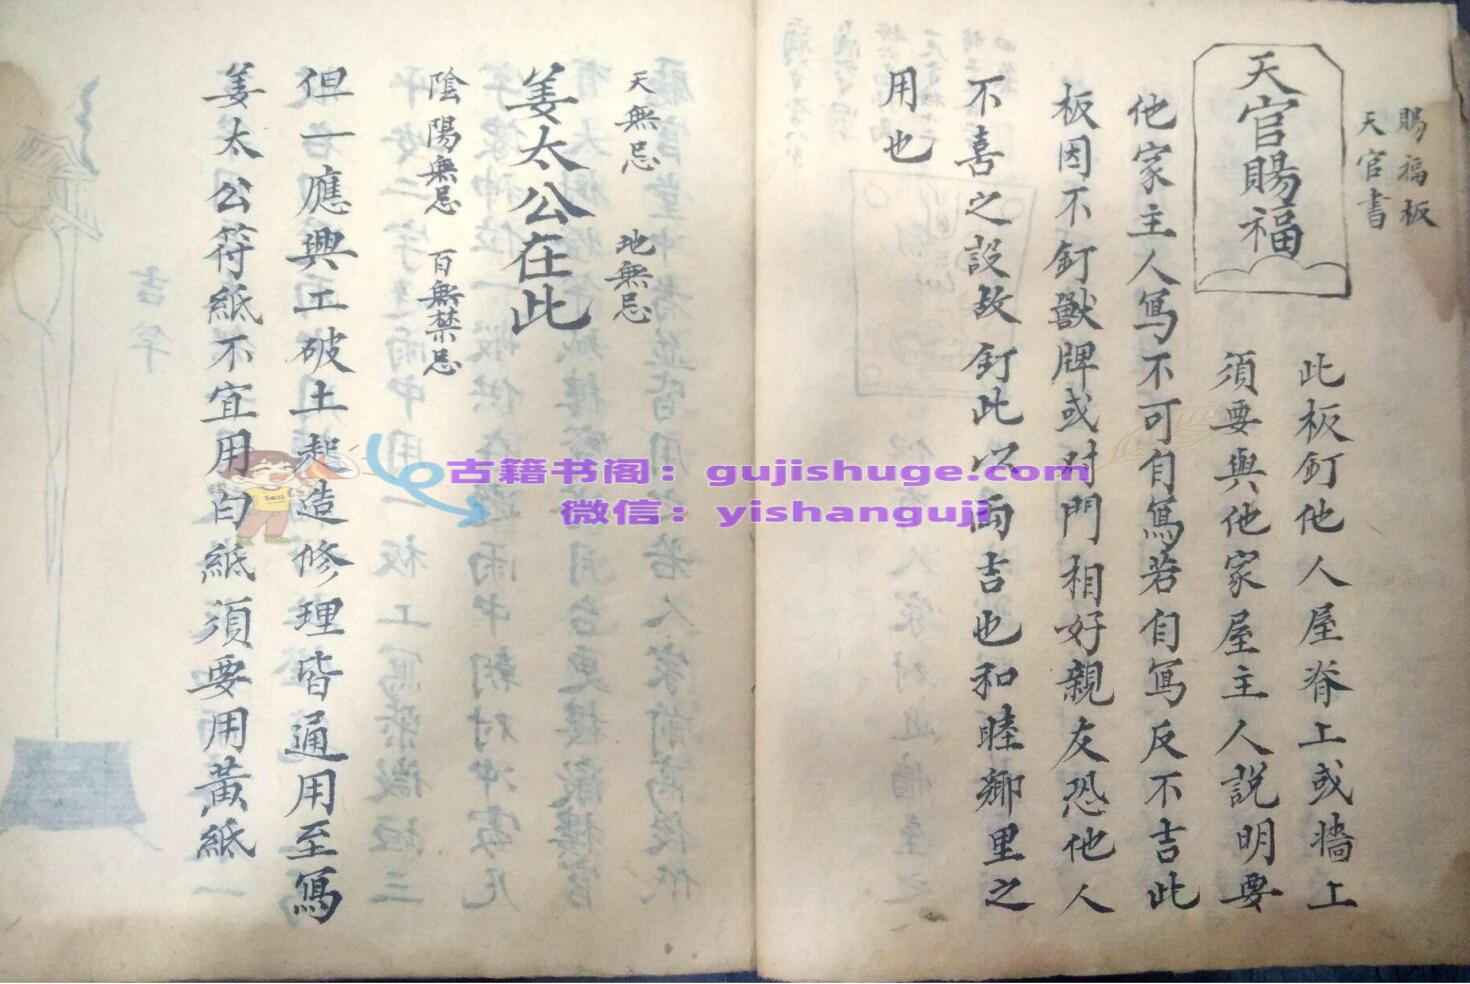 賜福板
天官書
天官賜福
此板釘他人屋脊上或牆上
須要與他家屋主人説明要
他家主人寫不可自寫若自寫反不吉此
板因不釘獸牌或對門相好親友恐他人
不喜之設故釘此以両吉也和睦鄉里之
用也
天無忌 地無忌
姜太公在此
陰陽無忌 百無禁忌
但一應興工破土起造修理皆通用至寫
姜太公符紙不宜用白紙須要用黃紙
古籍书阁：gujishuge.com
微信：yishanguji